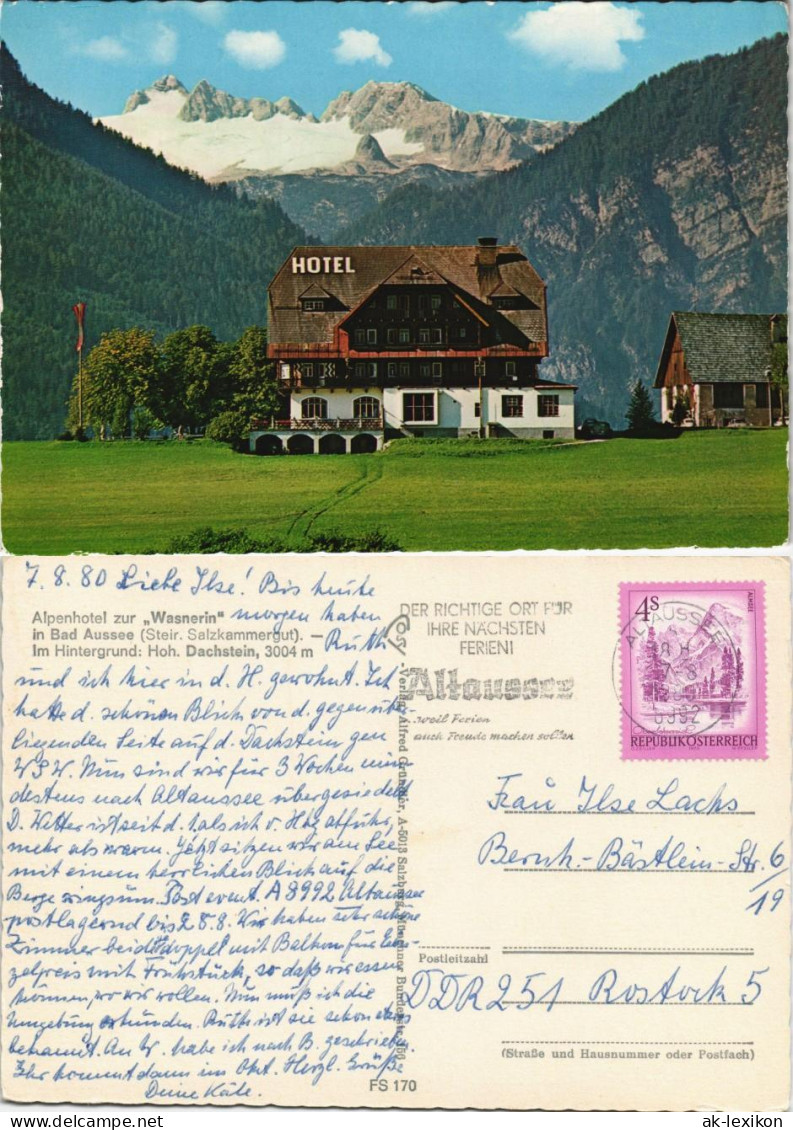 HOTEL
7.8.80 Liebe Ilse! Bis heute
Alpenhotel zur „Wasnerin"
in Bad Aussee (Steir. Salzkammergut). —
Im Hintergrund: Hoh. Dachstein, 3004 m
morgen haben
Ruth
und ich hier in d. H. gewohnt. Ich
hatte d. schönen Blick von d. gegenübe-
liegenden Seite auf d. Dachstein gen
WSW. Nun sind wir für 3 Wochen min
destens nach Altaussee übergesiedelt
D. Wetter ist seit d. 1. als ich v. H. abfuhr,
mehr als warm. Jetzt sitzen wir am See
mit einem herrlichen Blick auf die
Berge ringsum. Post event. A 8992 Altaussee
postlagernd bis 28.8. Wir haben sehr schöne
Zimmer beide doppel mit Balkon für Ein-
zelpreis mit Frühstück, so daß wir essen
können, wo wir wollen. Nun muß ich die
Umgebung erkunden. Ruth ist sie schon
bekannt. An W. habe ich nach B. geschrieben.
Ihr kommt dann im Okt. Herzl. Grüße
Deine Käte.
FS 170
Cosy-Verlag Alfred Gründler, A-5013 Salzburg, Münchner Bundesstr.
DER RICHTIGE ORT FÜR
IHRE NÄCHSTEN
FERIEN!
Altaussee
...weil Ferien
auch Freude machen sollen
ALTAUSSEE
8992
4S
ALMSEE
REPUBLIK ÖSTERREICH
Frau Ilse Lachs
Bernh.-Bästlein-Str. 6/
19
Postleitzahl
DDR 251 Rostock 5
(Straße und Hausnummer oder Postfach)
Delcampe.net
ak-lexikon